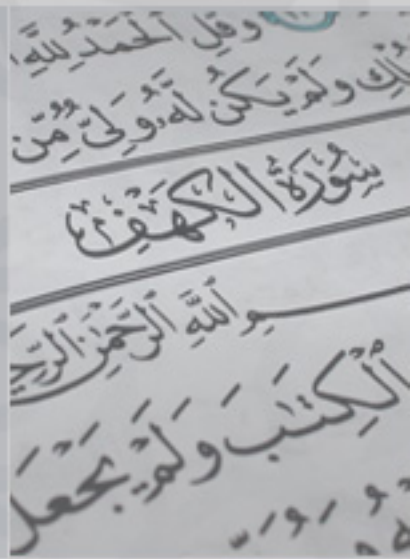 وَقُلِ ٱلْحَمْدُ لِلَّهِ
وَلَمْ يَكُن لَّهُۥ وَلِىٌّ مِّنَ
سُورَةُ الكَهْفِ
ٱللَّهِ ٱلرَّحْمَٰنِ
ٱلْكِتَٰبَ وَلَمْ يَجْعَل